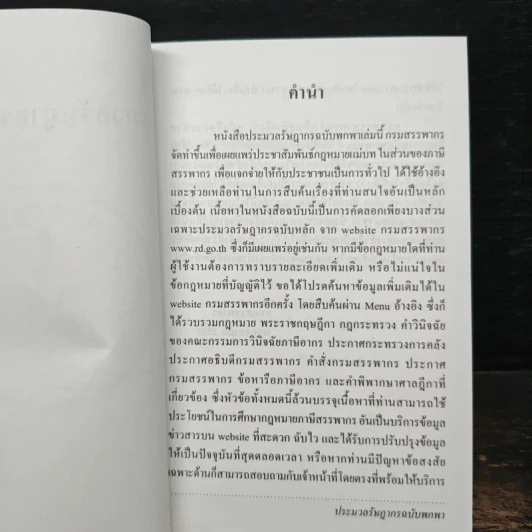 คำนำ
หนังสือประมวลรัษฎากรฉบับพกพาเล่มนี้ กรมสรรพากร
จัดทำขึ้นเพื่อเผยแพร่ประชาสัมพันธ์กฎหมายแม่บท ในส่วนของภาษี
สรรพากร เพื่อแจกจ่ายให้กับประชาชนเป็นการทั่วไป ได้ใช้อ้างอิง
และช่วยเหลือท่านในการสืบค้นเรื่องที่ท่านสนใจอันเป็นหลัก
เบื้องต้น เนื้อหาในหนังสือฉบับนี้เป็นการคัดลอกเพียงบางส่วน
เฉพาะประมวลรัษฎากรฉบับหลัก จาก website กรมสรรพากร
www.rd.go.th ซึ่งก็มีเผยแพร่อยู่เช่นกัน หากมีข้อกฎหมายใดที่ท่าน
ผู้ใช้งานต้องการทราบรายละเอียดเพิ่มเติม หรือไม่แน่ใจใน
ข้อกฎหมายที่บัญญัติไว้ ขอได้โปรดค้นหาข้อมูลเพิ่มเติมได้ใน
website กรมสรรพากรอีกครั้ง โดยสืบค้นผ่าน Menu อ้างอิง ซึ่งก็
ได้รวบรวมกฎหมาย พระราชกฤษฎีกา กฎกระทรวง คำวินิจฉัย
ของคณะกรรมการวินิจฉัยภาษีอากร ประกาศกระทรวงการคลัง
ประกาศอธิบดีกรมสรรพากร คำสั่งกรมสรรพากร ประกาศ
กรมสรรพากร ข้อหารือภาษีอากร และคำพิพากษาศาลฎีกาที่
เกี่ยวข้อง ซึ่งหัวข้อทั้งหมดนี้ล้วนบรรจุเนื้อหาที่ท่านสามารถใช้
ประโยชน์ในการศึกษากฎหมายภาษีสรรพากร อันเป็นบริการข้อมูล
ข่าวสารบน website ที่สะดวก ฉับไว และได้รับการปรับปรุงข้อมูล
ให้เป็นปัจจุบันที่สุดตลอดเวลา หรือหากท่านมีปัญหาข้อสงสัย
เฉพาะด้านก็สามารถสอบถามกับเจ้าหน้าที่โดยตรงที่พร้อมให้บริการ
ประมวลรัษฎากรฉบับพกพา